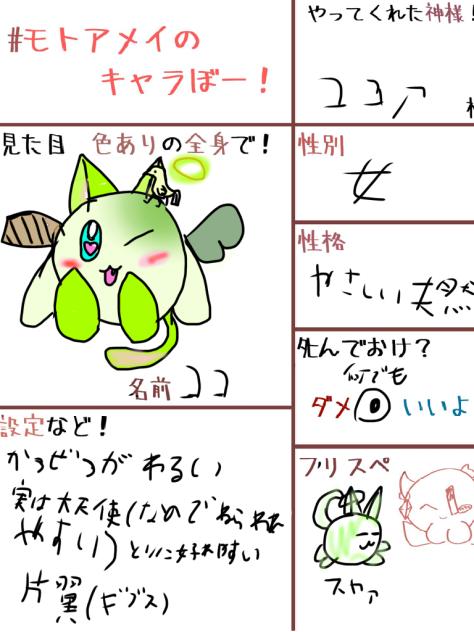 #モトアメイの
キャラぼー!
やってくれた神様!
ココア
見た目 色ありの全身で!
名前 ココ
性別
女
性格
やさしい 天然
死んでおけ?
何でも
ダメ いいよ
設定など!
かつぜつがわるい
実は大天使(なので
やすい)とりに好かれやすい
片翼(ギプス)
フリスペ